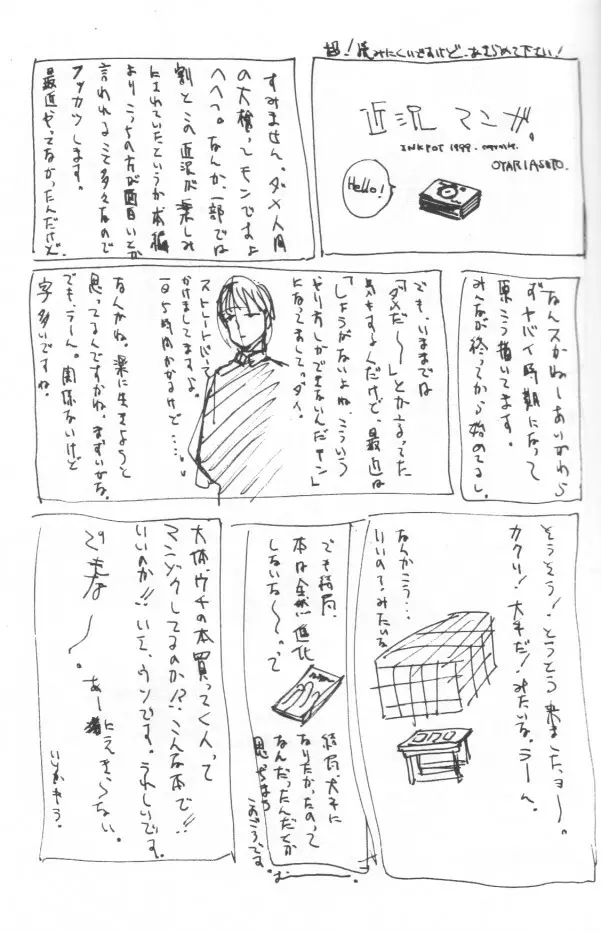 超!読みにくいですけど、あきらめて下さい!
近況マンガ。
INKPOT 1999.
OYARI ASHITO.
Hello!
すみません。ダメ人間
の大槍ってモンですよ
へへへ。なんか、一部では
割とこの近況が楽しみ
にされていたというか本編
よりこっちの方が面白いとか
言われること多々なので
フッカツします。
最近やってなかったんだけど
なんスかねーあいかわら
ずヤバイ時期になって
原こう描いてます。
みんなが終ってから始めてるし。
でも、いままでは
「ダメだ〜」とか言ってた
気もするんだけど、最近は
「しょうがないよね、こういう
やり方しかできないんだモン」
になってまして。ダメ。
ストレートパーマ
かけましてますよ。
一日5時間かかるけど……。
なんかね。楽に生きようと
思ってるんですかね。まずいかな。
でも、うーん。関係ないけど
字多いですね。
そうそう!とうとう来ましたョー。
カクリ!大手だ!みたいな。うーん。
なんかこう…
いいの?みたいな
でも結局、
本は全然進化
しないな〜って
結局、大手に
なりたかったのって
なんだったんだとか
思っちまう
おごりです。
むー。
大体、ウチの本買ってく人って
マンゾクしてるのか!?こんな本で!!
いいのか!!いえ、ウソです。うれしいです。
でもな〜。
あー
にえきらない。